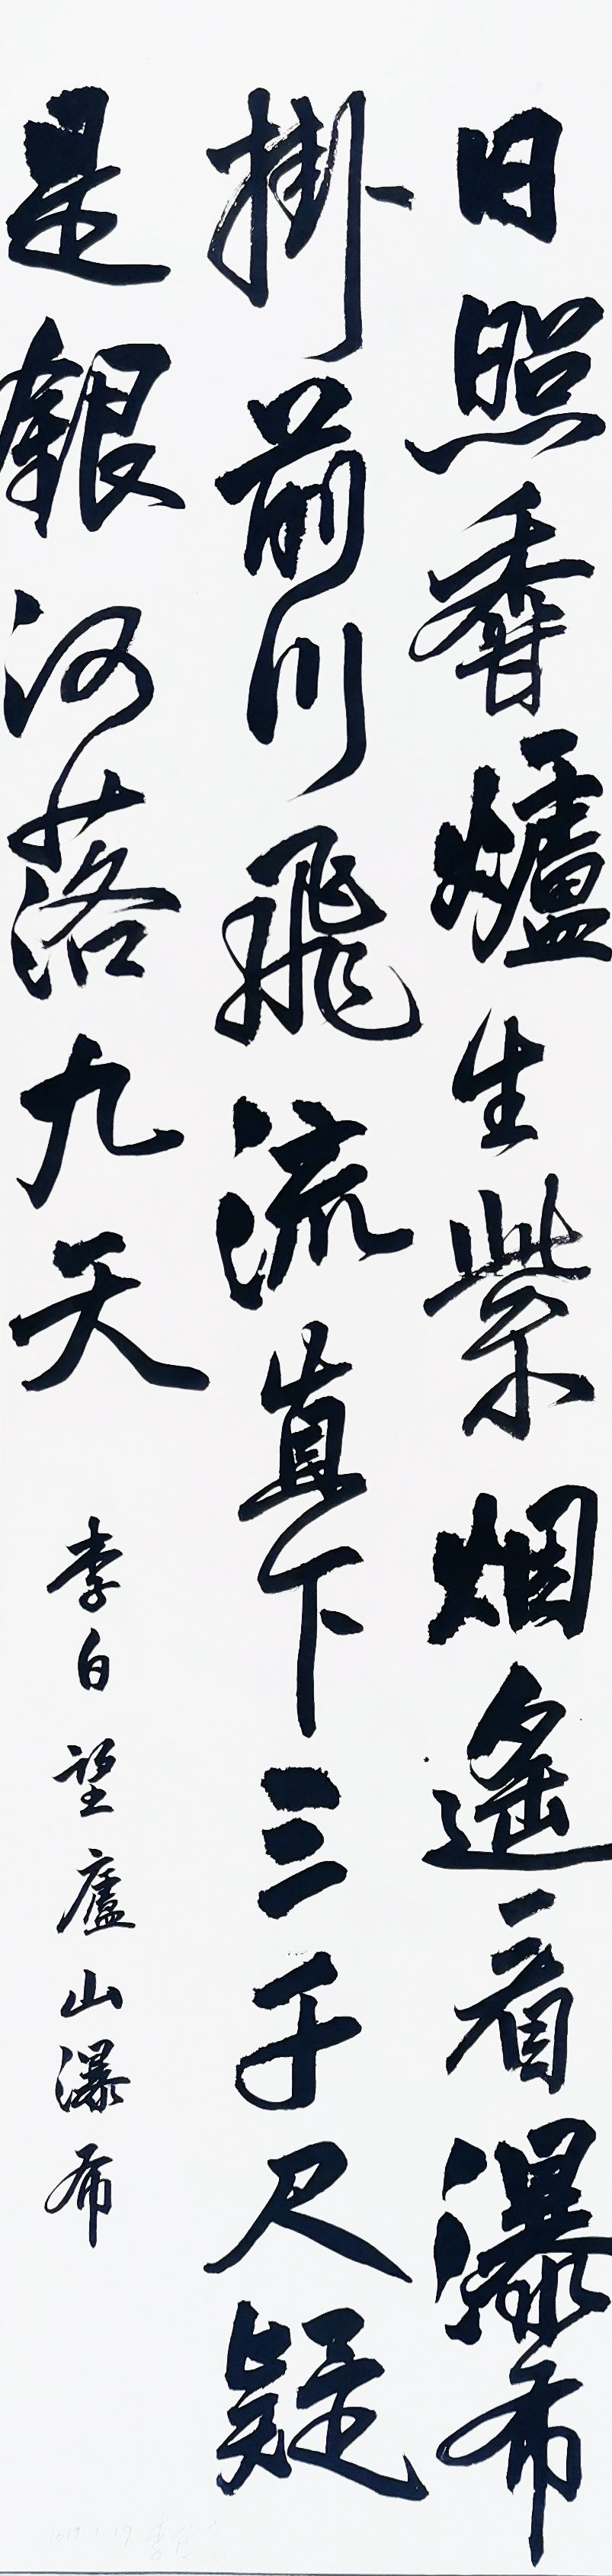 日照香爐生紫烟遙看瀑布
掛前川飛流直下三千尺疑
是銀河落九天
李白望廬山瀑布